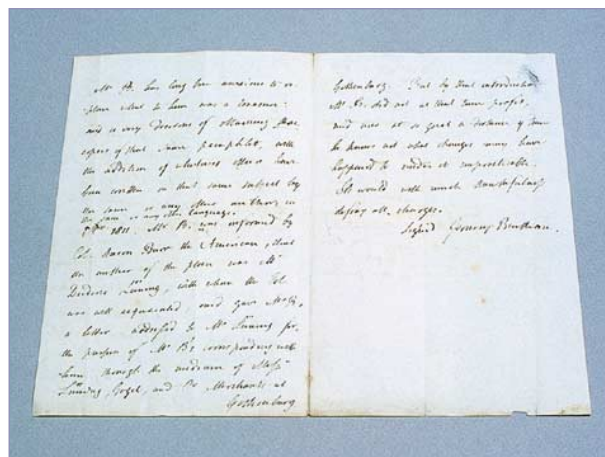 Mr B. has long been anxious to re-
place what to him was a treasure:
and is very desirous of obtaining
copies of that same pamphlet, with
the addition of whatever others have
been written on that same subject by
the same or any other author, in
the same or any other language.
1811. Mr B. was informed by
Col. Aaron Burr the American, that
the author of the plan was Mr
Lüning, with whom the Col.
was well acquainted, and gave
a letter addressed to Mr Lüning for
the purpose of Mr B's corresponding with
him through the medium of Messrs
Lüning, Gogel, and Co Merchants at
Gothenburg
Gothenburg. But by that introduction
Mr B. did not at that time profit,
and was at so great a distance of time
he knows not what changes may have
happened to render it impracticable.
He would with much thankfulness
defray all charges.
Signed Jeremy Bentham.